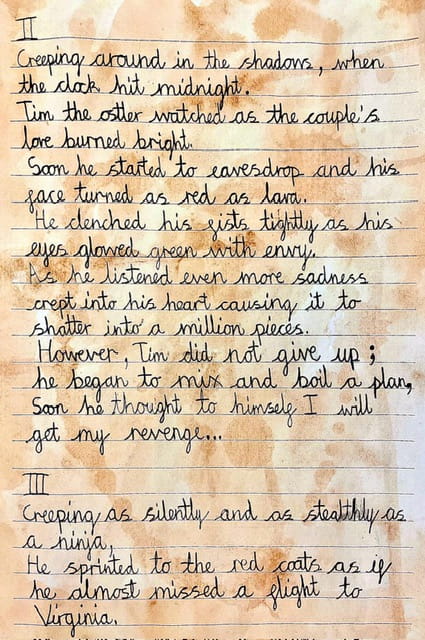 II
Creeping around in the shadows, when
the clock hit midnight.
Tim the ostler watched as the couple's
love burned bright.
Soon he started to eavesdrop and his
face turned as red as lava.
He clenched his fists tightly as his
eyes glowed green with envy.
As he listened even more sadness
crept into his heart causing it to
shatter into a million pieces.
However, Tim did not give up;
he began to mix and boil a plan,
Soon he thought to himself I will
get my revenge...
III
Creeping as silently and as stealthly as
a ninja,
He sprinted to the red coats as if
he almost missed a flight to
Virginia.